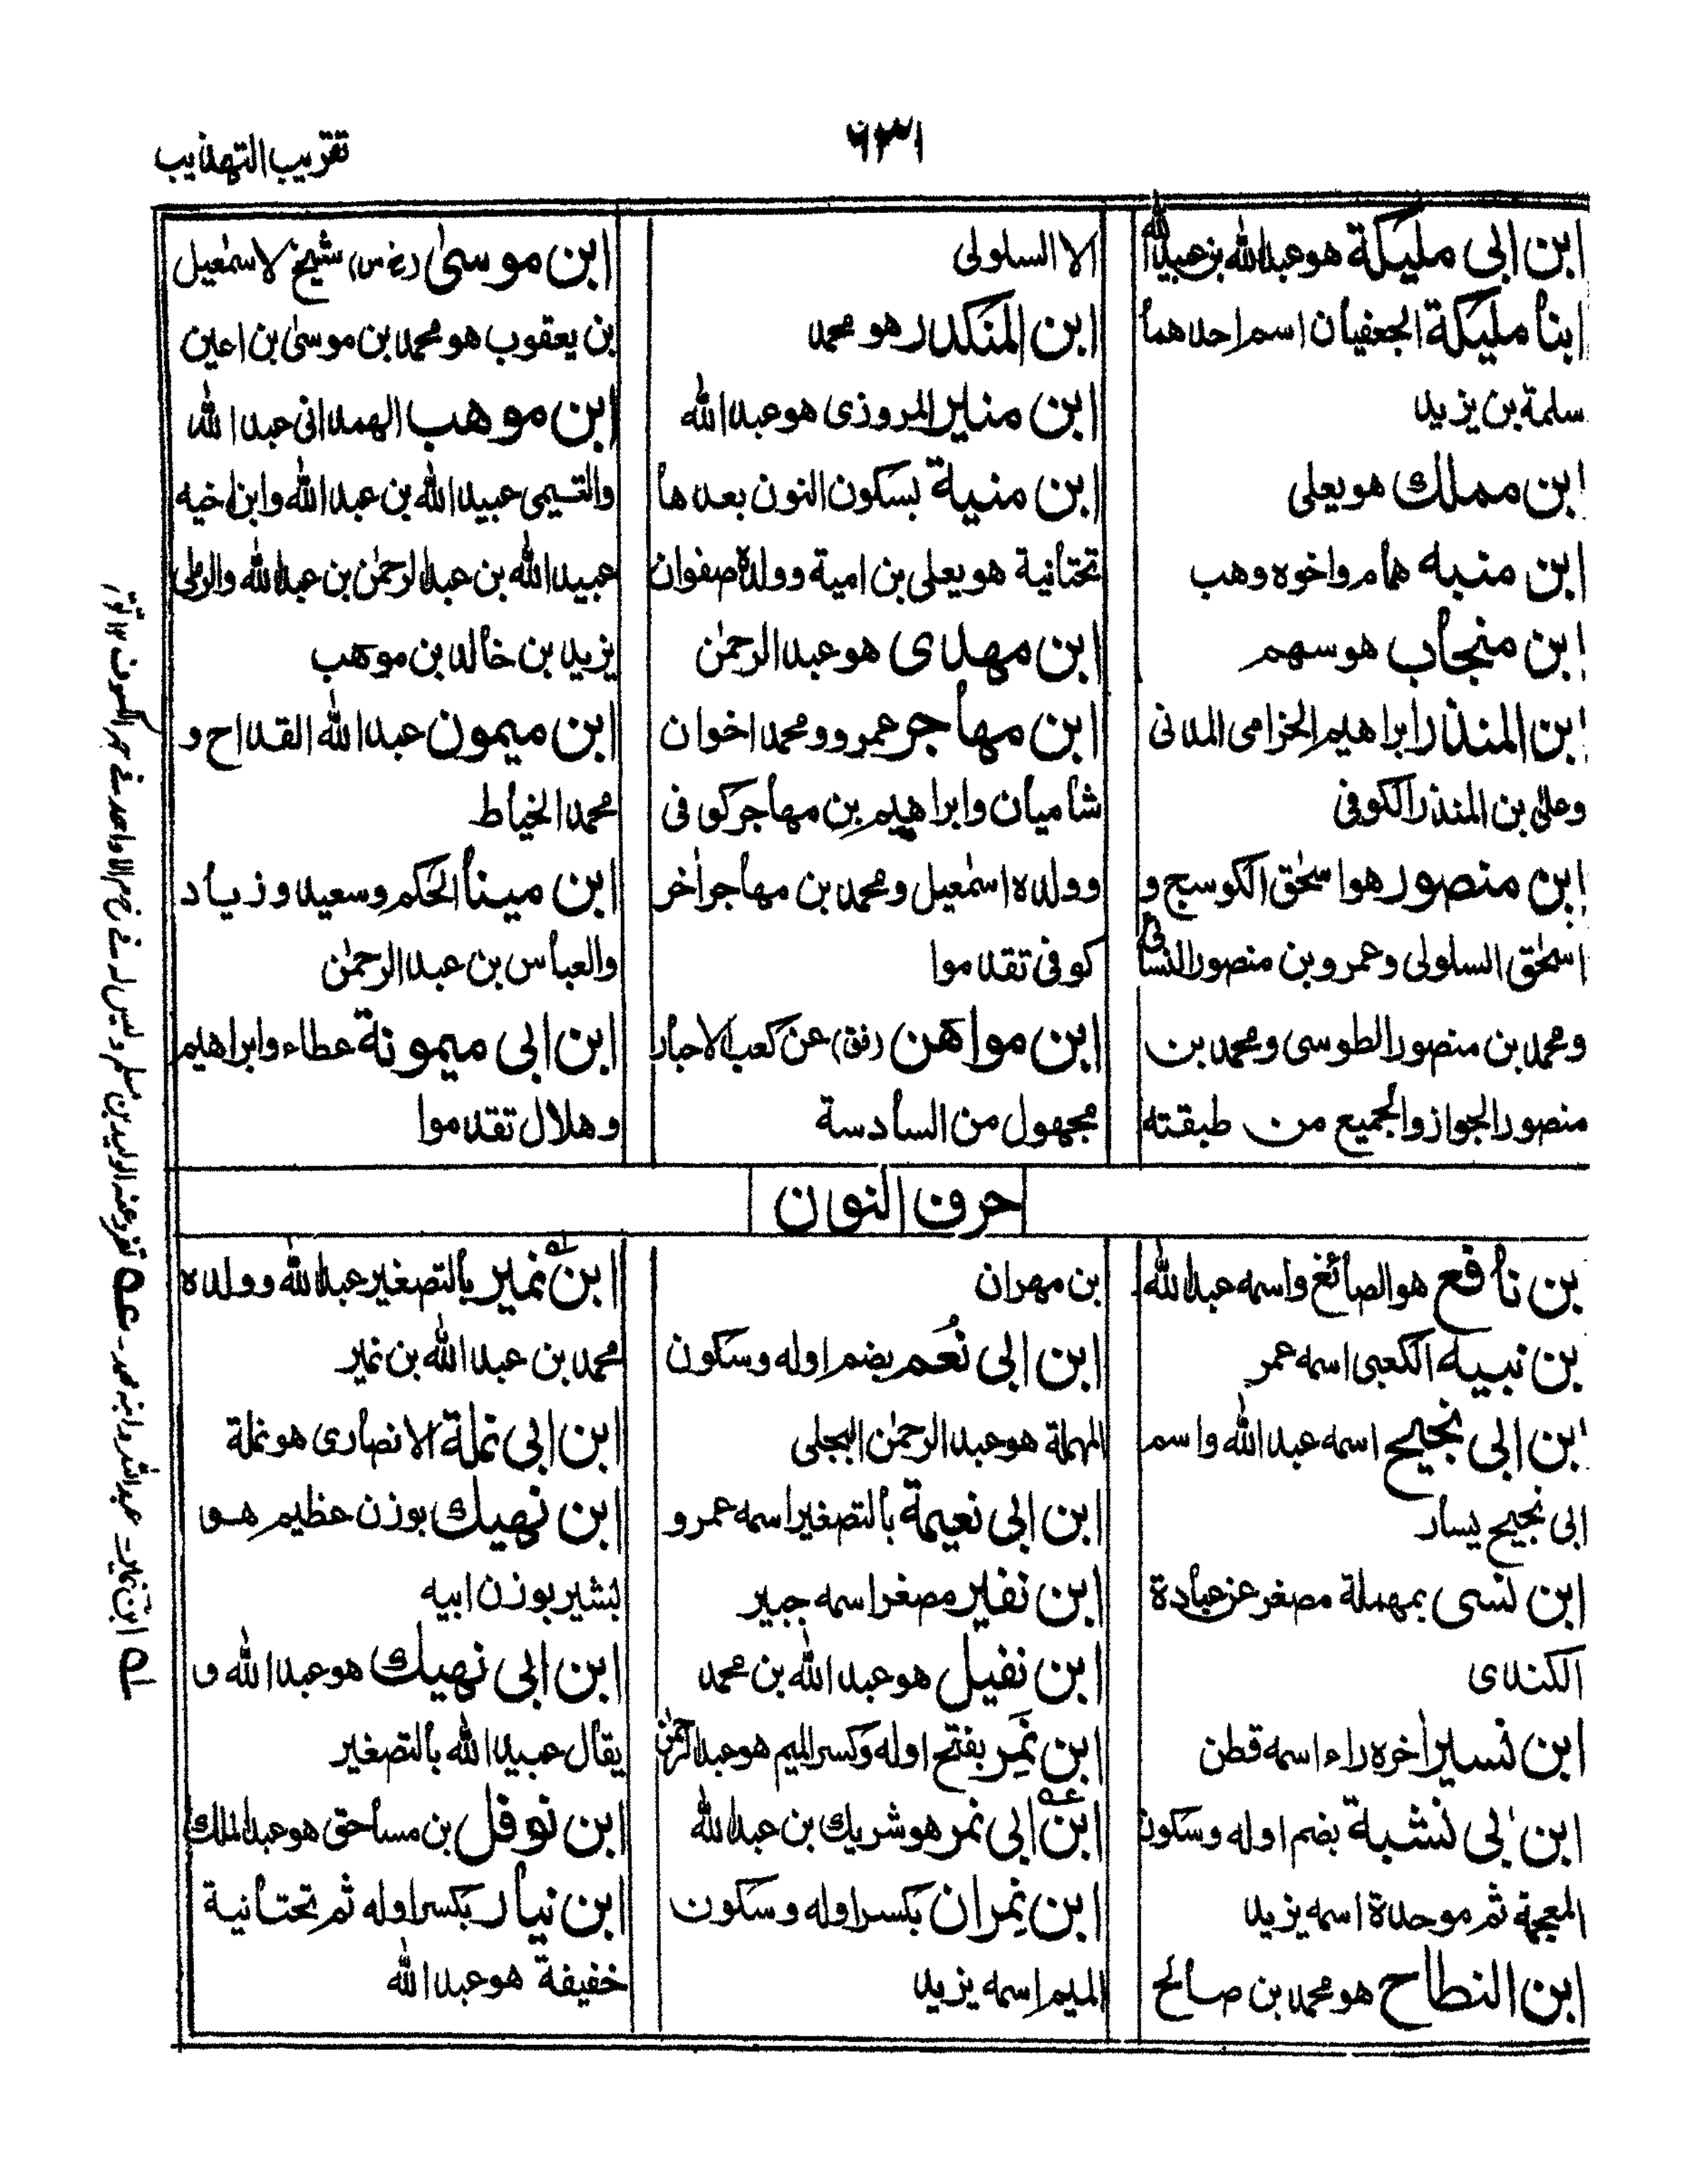 ٦٣١
تقريب التهذيب
ابن ابى مليكة هو عبد الله بن عبيد الله
ابنا مليكة الجعفيان اسم احدهما
سلمة بن يزيد
ابن مملك هو يعلى
ابن منبه همام واخوه وهب
ابن منجاب هو سهم
ابن المنذر ابراهيم الحزامى المدنى
وعلى بن المنذر الكوفى
ابن منصور هو اسحٰق الكوسج و
اسحٰق السلولى وعمرو بن منصور النسائى
ومحمد بن منصور الطوسى ومحمد بن
منصور الجواز والجميع من طبقته
الا السلولى
ابن المنكدر هو محمد
ابن منير المروزى هو عبد الله
ابن منية بسكون النون بعدها
تحتانية هو يعلى بن امية وولده صفوان
ابن مهدى هو عبد الرحمٰن
ابن مهاجر عمرو ومحمد اخوان
شاميان وابراهيم بن مهاجر كوفى
وولده اسمٰعيل ومحمد بن مهاجر اٰخر
كوفى تقدموا
ابن مواهن (فق) عن كعب الاحبار
مجهول من السادسة
ابن موسىٰ (خ س) شيخ لاسمٰعيل
بن يعقوب هو محمد بن موسىٰ بن اعين
ابن موهب الهمدانى عبد الله
والتيمى عبيد الله بن عبد الله وابن اخيه
عبيد الله بن عبد الرحمٰن بن عبد الله والرملى
يزيد بن خالد بن موهب
ابن ميمون عبد الله القداح و
محمد الخياط
ابن مينا الحكم وسعيد وزياد
والعباس بن عبد الرحمٰن
ابن ابى ميمونة عطاء وابراهيم
وهلال تقدموا
حرف النون
بن نافع هو الصائغ واسمه عبد الله
بن نبيه الكعبى اسمه عمر
ابن ابى نجيح اسمه عبد الله واسم
ابى نجيح يسار
ابن نسى بمهملة مصغر عن عبادة
الكندى
ابن نسير اٰخره راء اسمه قطن
ابن ابى نشبة بضم اوله وسكون
المعجمة ثم موحدة اسمه يزيد
ابن النطاح هو محمد بن صالح
بن مهران
ابن ابى نُعم بضم اوله وسكون
المهملة هو عبد الرحمٰن البجلى
ابن ابى نعيمة بالتصغير اسمه عمرو
ابن نفير مصغر اسمه جبير
ابن نفيل هو عبد الله بن محمد
ابن نَمِر بفتح اوله وكسر الميم هو عبد الرحمٰن
ابن عه ابى نمر هو شريك بن عبد الله
ابن نِمران بكسر اوله وسكون
الميم اسمه يزيد
ابن له نمير بالتصغير عبد الله وولده
محمد بن عبد الله بن نمير
ابن ابى نملة الانصارى هو نملة
ابن نهيك بوزن عظيم هو
بشير بوزن ابيه
ابن ابى نهيك هو عبد الله و
يقال عبيد الله بالتصغير
ابن نوفل بن مساحق هو عبد الملك
ابن نيار بكسر اوله ثم تحتانية
خفيفة هو عبد الله